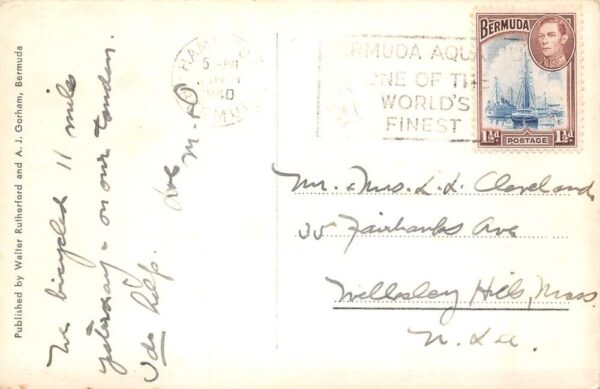 Published by Walter Rutherford and A. J. Gorham, Bermuda
We bicycled 11 miles
yesterday - on our tandem.
I do help.
Love
M. + D
HAM
5 PM
40
BERMUDA AQUA
ONE OF THE
WORLD'S
FINEST
BERMUDA
1½d POSTAGE 1½d
Mr. + Mrs. L. L. Cleveland
35 Fairbanks Ave
Wellesley Hills, Mass.